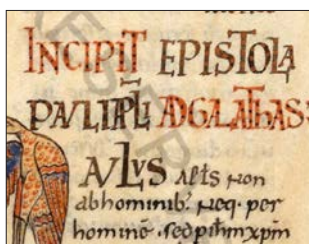 INCIPIT EPISTOLA
PAULI APLI AD GALATHAS:
AULUS aplts non
ab hominib; neq. per
hominē. sed p ihm xpm